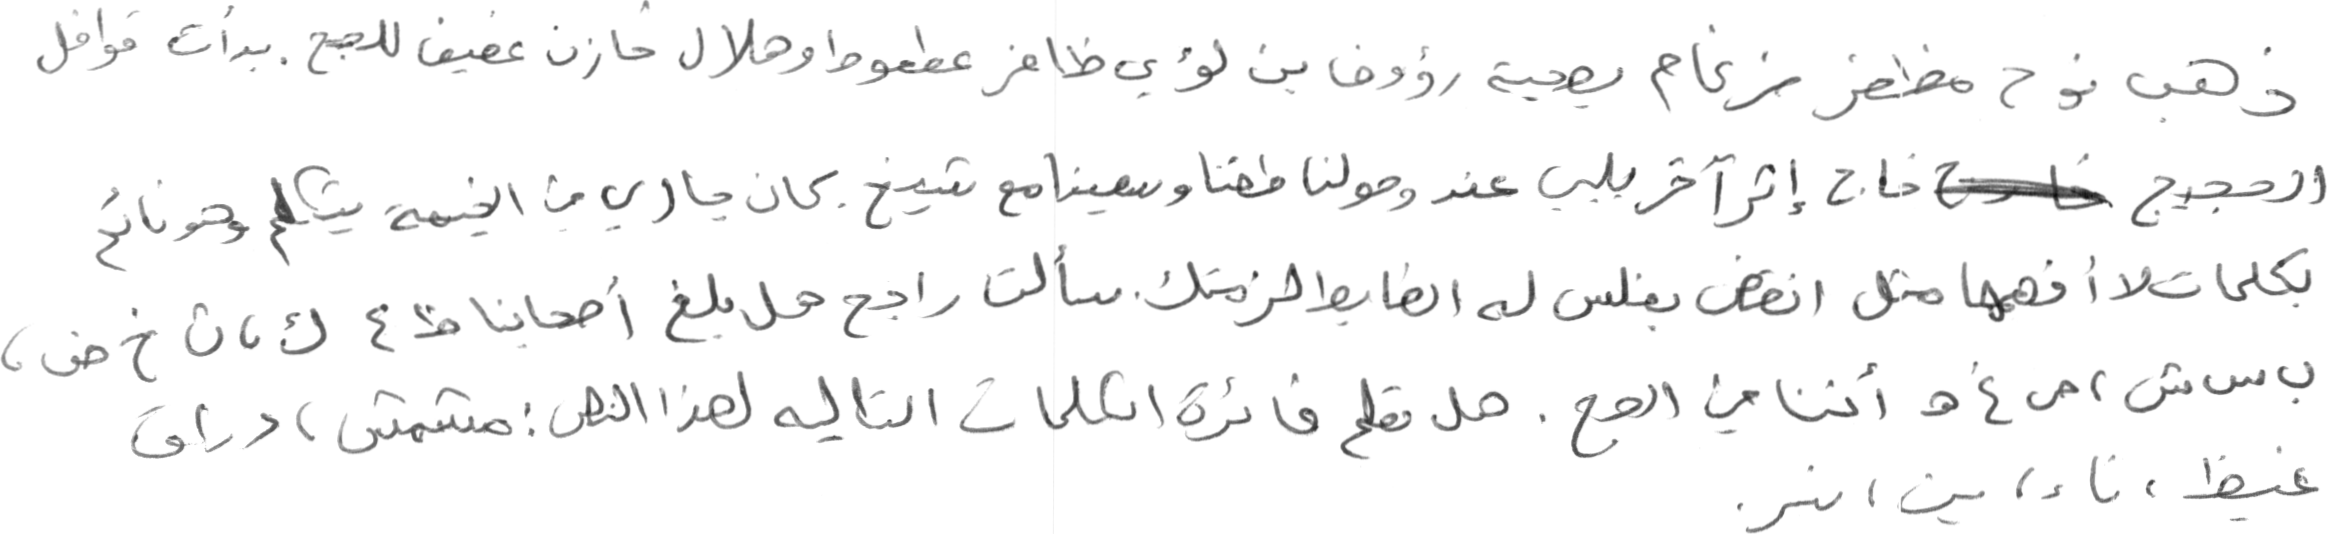 ذهب نوح مظفر ضرغام بصحبة رؤوف بن لؤي ظافر عطعوط وهلال خازن عفيف للحج. بدأت قوافل
الحجيج فاج إثر آخر يلبي عند وصولنا طفنا وسعينا مع شيخ. كان جاري في الخيمة يتكلم وهو نائم
بكلمات لا أفهمها مثل انقض بغلس له الضابط المزمتك. سألت راجح هل بلغ أصحابنا ظ ع ك، ث خ ض،
ب س ش، ص غ ه أننا في الحج. هل تعلم فائدة الكلمات التالية لهذا النص: مشمش، دراق
غيظ، ناء، مين، نسر.